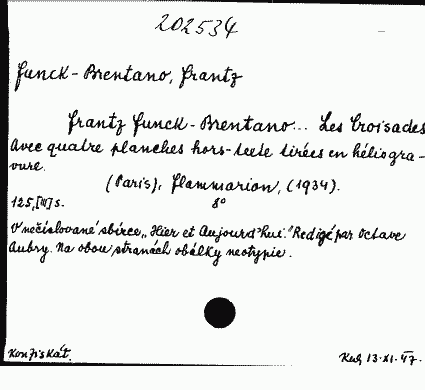 202534
Funck-Brentano, Frantz
Frantz Funck-Brentano... Les Croisades
Avec quatre planches hors-texte tirées en héliogra-
vure.
(Paris), Flammarion, (1934).
125,[III] s. 8°
V nečíslované sbírce „Hier et Aujourd'hui." Redigé par Octave
Aubry. Na obou stranách obálky neotypie.
Konfiskát. Kuh 13.XI.47.